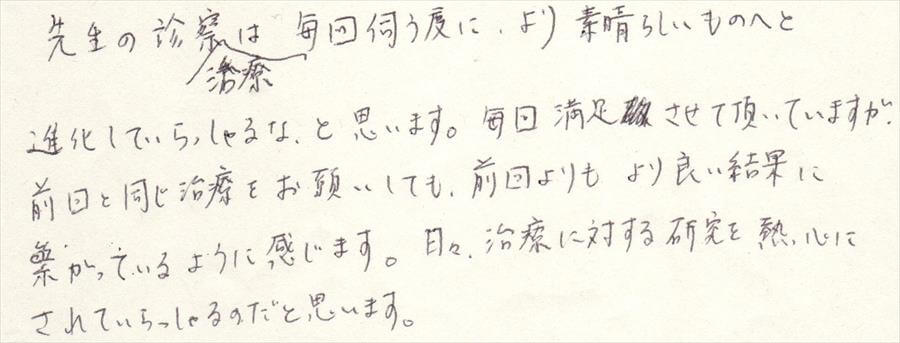 先生の診察は毎回伺う度に、より素晴らしいものへと
治療
進化していらっしゃるな、と思います。毎回満足させて頂いていますが、
前回と同じ治療をお願いしても、前回よりもより良い結果に
繋がっているように感じます。日々、治療に対する研究を熱心に
されていらっしゃるのだと思います。